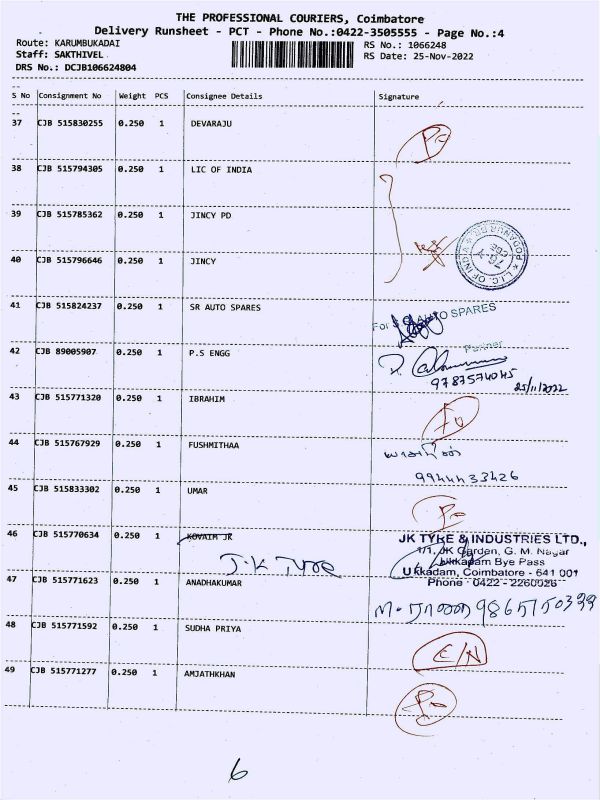 THE PROFESSIONAL COURIERS, Coimbatore
Delivery Runsheet - PCT - Phone No.:0422-3505555 - Page No.:4
Route: KARUMBUKADAI RS No.: 1066248
Staff: SAKTHIVEL RS Date: 25-Nov-2022
DRS No.: DCJB106624804
S No Consignment No Weight PCS Consignee Details Signature
37 CJB 515830255 0.250 1 DEVARAJU
38 CJB 515794305 0.250 1 LIC OF INDIA
39 CJB 515785362 0.250 1 JINCY PD
40 CJB 515796646 0.250 1 JINCY
L.I.C. OF INDIA
PODANUR
41 CJB 515824237 0.250 1 SR AUTO SPARES
For AUTO SPARES
Partner
42 CJB 89005907 0.250 1 P.S ENGG
9787574045
25/11/2022
43 CJB 515771320 0.250 1 IBRAHIM
44 CJB 515767929 0.250 1 FUSHMITHAA
9944433426
45 CJB 515833302 0.250 1 UMAR
46 CJB 515770634 0.250 1 KOVAIM JK
J.K Tyre
JK TYRE & INDUSTRIES LTD.,
1/1, JK Garden, G. M. Nagar
Ukkadam Bye Pass
Ukkadam, Coimbatore - 641 001
Phone : 0422 - 2260026
47 CJB 515771623 0.250 1 ANADHAKUMAR
48 CJB 515771592 0.250 1 SUDHA PRIYA
E/N
49 CJB 515771277 0.250 1 AMJATHKHAN
6